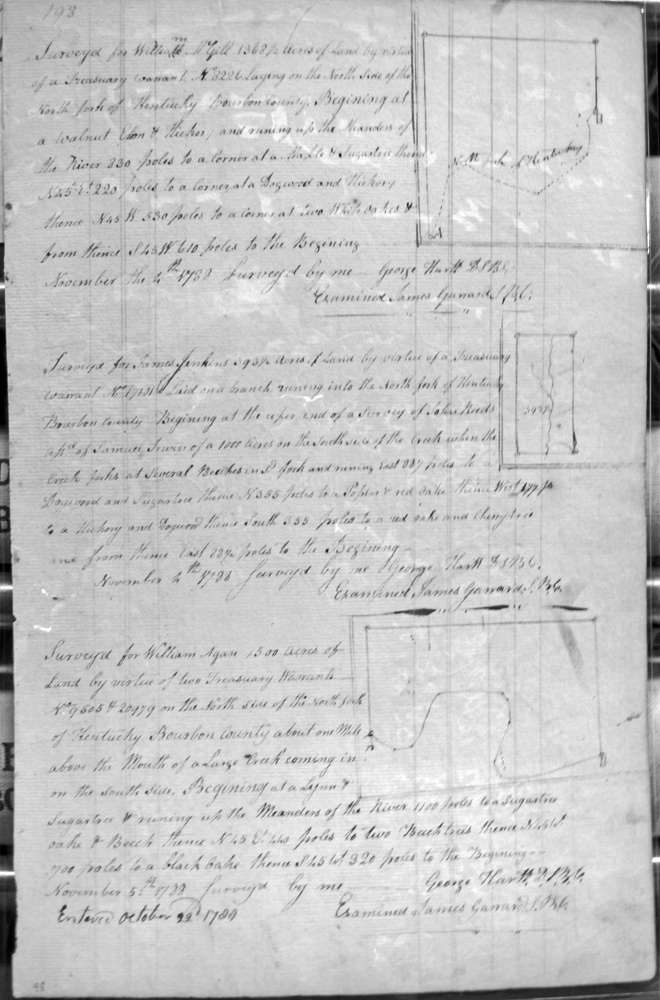 198
Surveyd for Willm McGill 1368½ Acres of Land by virtue
of a Treasuary warrant No 5226 Laying on the North Side of the
North fork of Kentucky Bourbon County Begining at
a walnut Elm & Hickory and runing up the Meanders of
the River 230 poles to a Corner at a & Sugartree thence
N 45 Et 220 poles to a Corner at a Dogwood and Hickory
thence N 45 W 530 poles to a Corner at two White oakes &
from thence S 45 W 610 poles to the Begining
November the 4th 1788 Surveyd by me George Hartt D S B C
Examined James Garrard S B C
North fork of Kentucky
Surveyd for James Jenkins 393¾ Acres of Land by virtue of a Treasuary
warrant No Laid on a branch runing into the North fork of Kentucky
Bourbon County Begining at the uper end of a Survey of John Reeds
of Samuel Irwin of a 1000 Acres on the South side of the Creek when the
Creek forks at Several Beeches in sd fork and runing East 237 poles to a
Dogwood and Sugartree thence N 355 poles to a Poplar & red oake thence West 177 po
to a Hickory and Dogwood thence South 355 poles to a red oake and Cherrytree
and from thence East poles to the Begining
November 4th 1788 Surveyd by me George Hartt D S B C
Examined James Garrard S B C
393¾
Surveyd for William Agan 1500 Acres of
Land by virtue of two Treasuary Warrants
No 7505 & 20479 on the North side of the North fork
of Kentucky Bourbon County about one Mile
above the Mouth of a Large Creek coming in
on the South side. Begining at a Lynn &
Sugartree & runing up the Meanders of the River 1100 poles to a Sugartree
oake & Beech thence N 45 Et 440 poles to two Beech trees thence N 45 Wt
700 poles to a black oake thence S 45 Wt 320 poles to the Begining
November 5th 1788 Surveyd by me George Hartt D S B C
Entered October 22d 1788 Examined James Garrard S B C
98